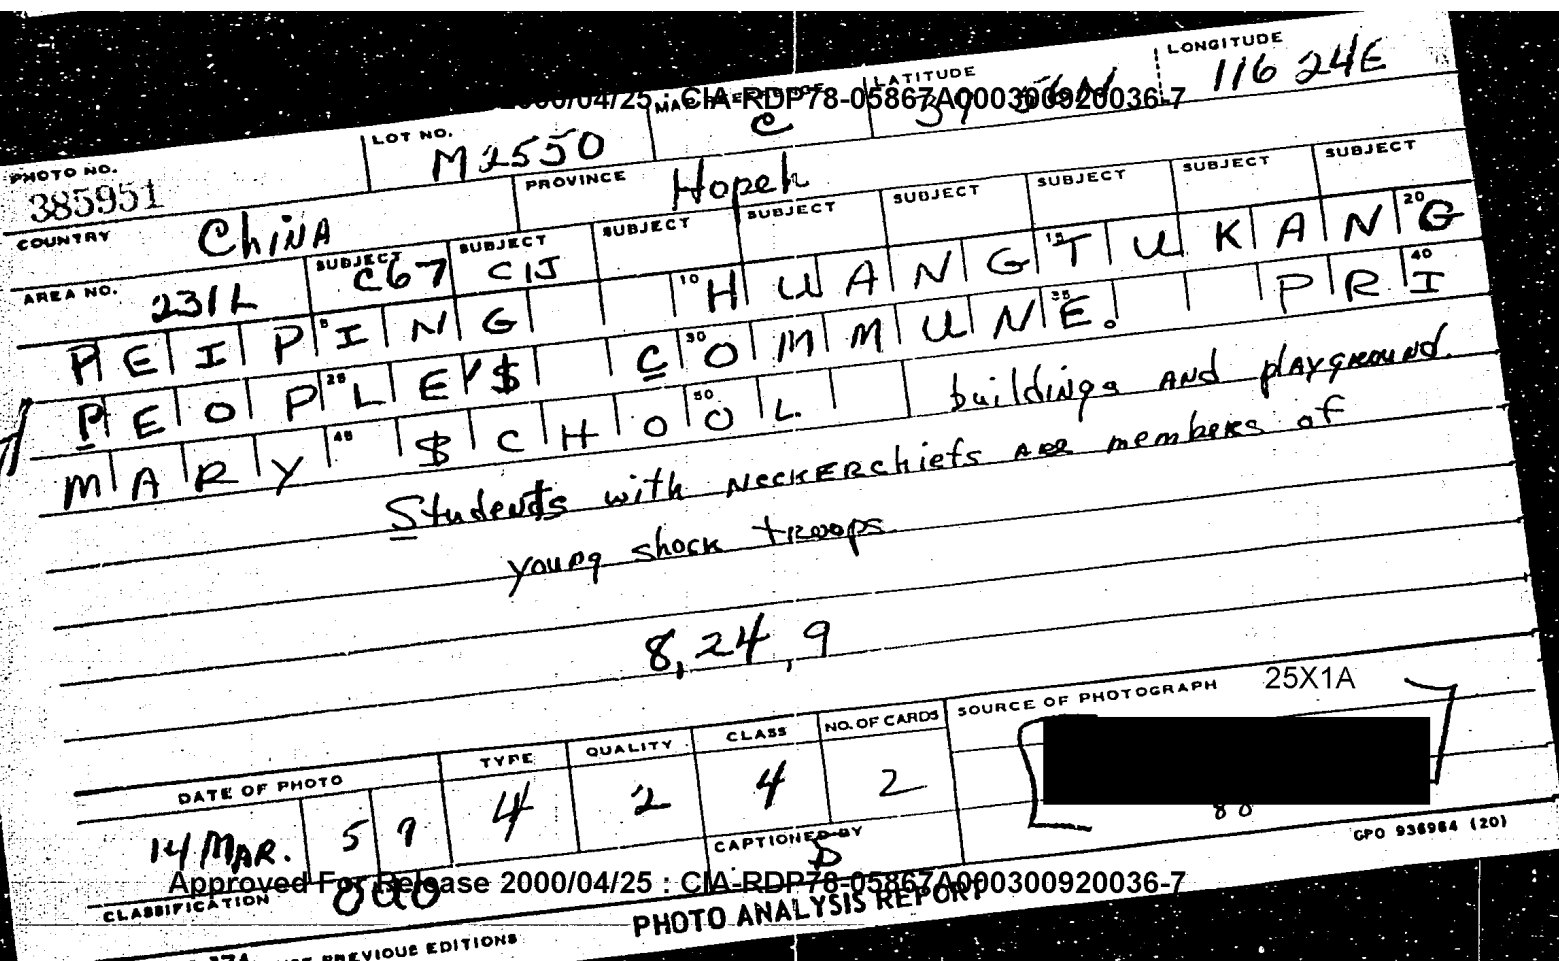 2000/04/25 : CIA-RDP78-05867A000300920036-7
PHOTO NO. 385951
LOT NO. M2550
MAP REFERENCE C
LATITUDE 39 56N
LONGITUDE 116 24E
COUNTRY China
PROVINCE Hopeh
AREA NO. 231L
SUBJECT C67
SUBJECT CIJ
SUBJECT
SUBJECT
SUBJECT
SUBJECT
SUBJECT
SUBJECT
PEIPING HUANGTUKANG
PEOPLE'$ COMMUNE. PRI
MARY $CHOOL. buildings and playground.
Students with neckerchiefs are members of
young shock troops.
8, 24, 9
DATE OF PHOTO 14 MAR. 59
TYPE 4
QUALITY 2
CLASS 4
NO. OF CARDS 2
SOURCE OF PHOTOGRAPH 25X1A
80
CAPTIONED BY D
GPO 936984 (20)
Approved For Release 2000/04/25 : CIA-RDP78-05867A000300920036-7
CLASSIFICATION OUO
PHOTO ANALYSIS REPORT
PREVIOUS EDITIONS